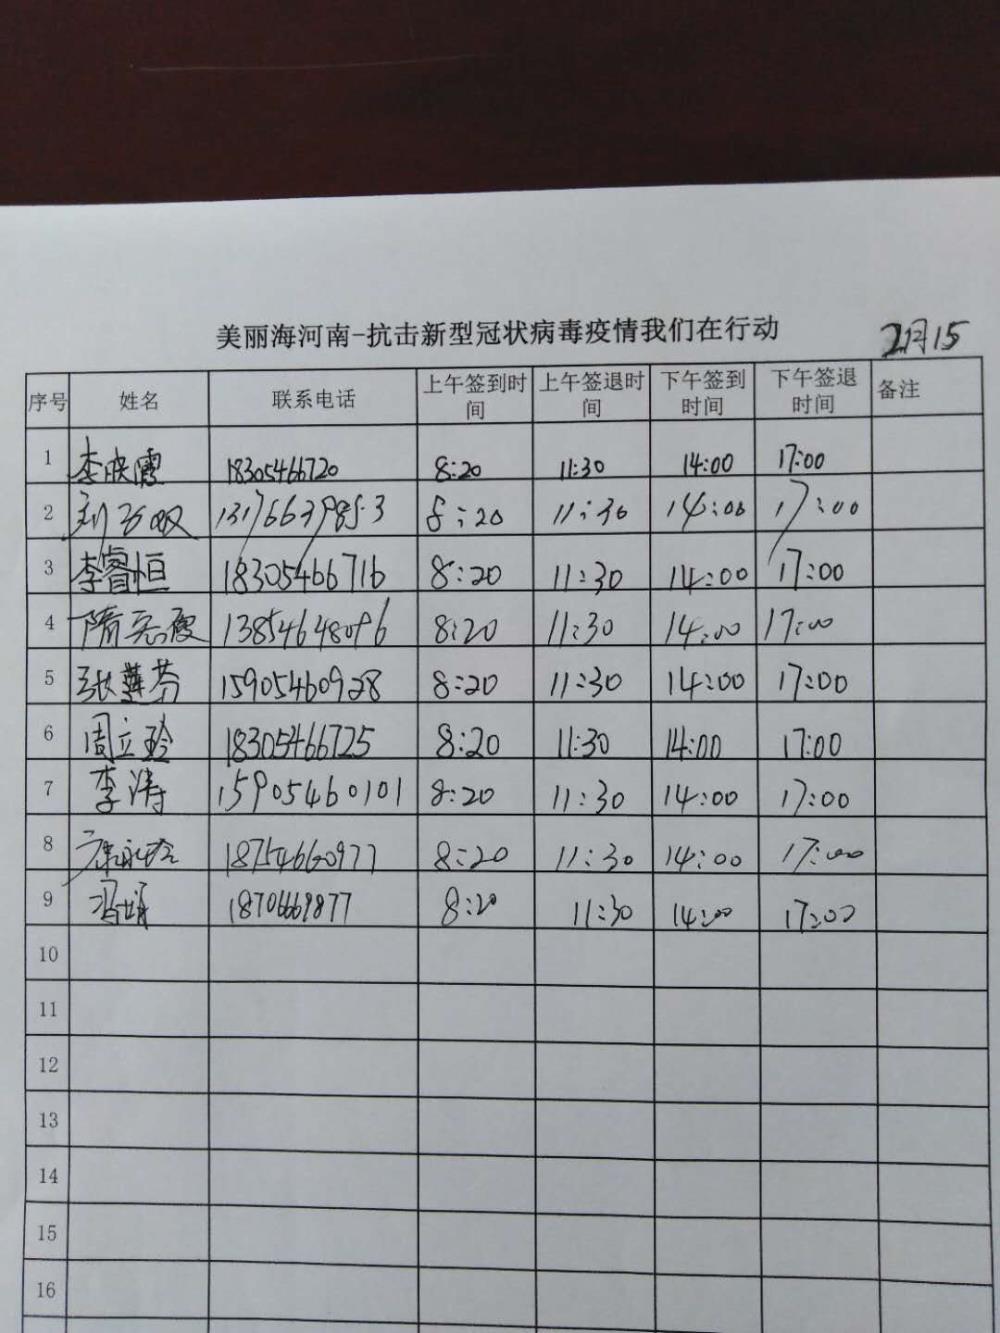 美丽海河南-抗击新型冠状病毒疫情我们在行动 2月15
序号 姓名 联系电话 上午签到时间 上午签退时间 下午签到时间 下午签退时间 备注
1 李映霞 18305466720 8:20 11:30 14:00 17:00
2 13176639853 8:20 11:30 14:00 17:00
3 李睿恒 18305466716 8:20 11:30 14:00 17:00
4 13854648096 8:20 11:30 14:00 17:00
5 张莲芬 15905460928 8:20 11:30 14:00 17:00
6 周立玲 18305466725 8:20 11:30 14:00 17:00
7 李涛 15905460101 8:20 11:30 14:00 17:00
8 康永玲 18754660977 8:20 11:30 14:00 17:00
9 冯娟 18706669877 8:20 11:30 14:00 17:00
10
11
12
13
14
15
16